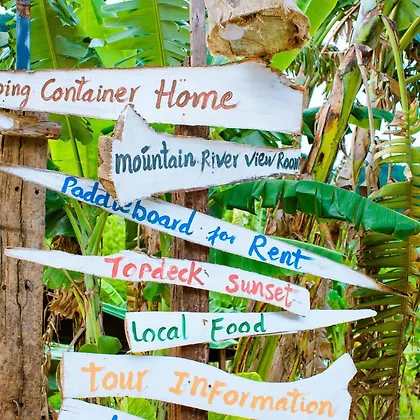 ping Container Home
mountain River view Room
Paddleboard for Rent
Topdeck Sunset
Local Food
Tour InFormation